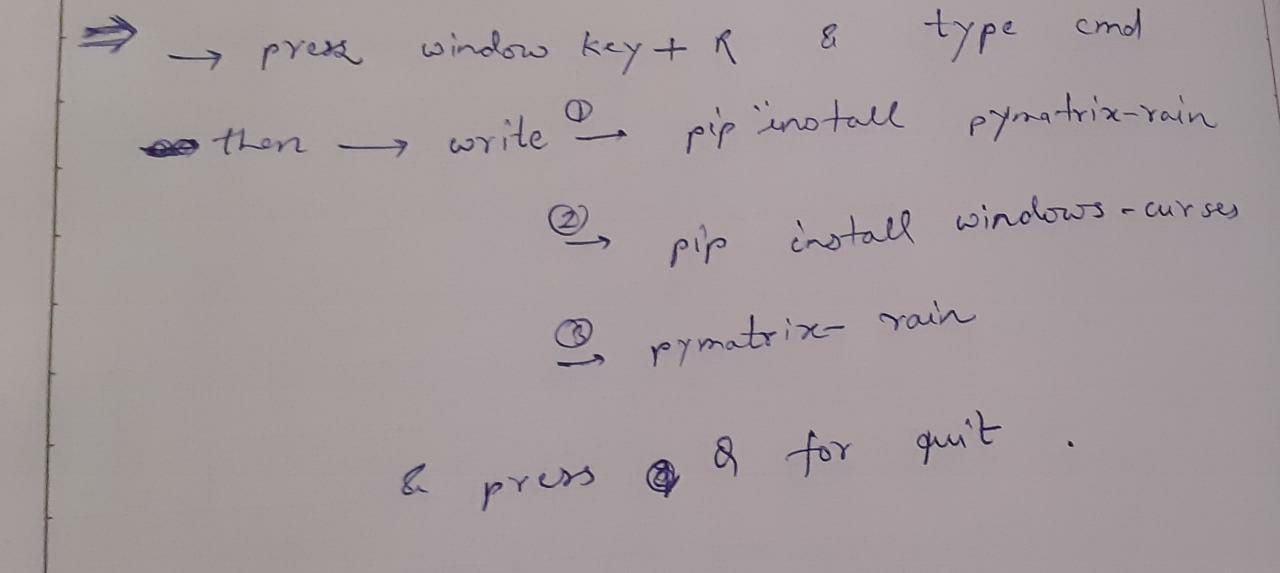 ⇒ → press window key + R & type cmd
then → write ① → pip install pymatrix-rain
② → pip install windows-curses
③ → pymatrix-rain
& press Q for quit.